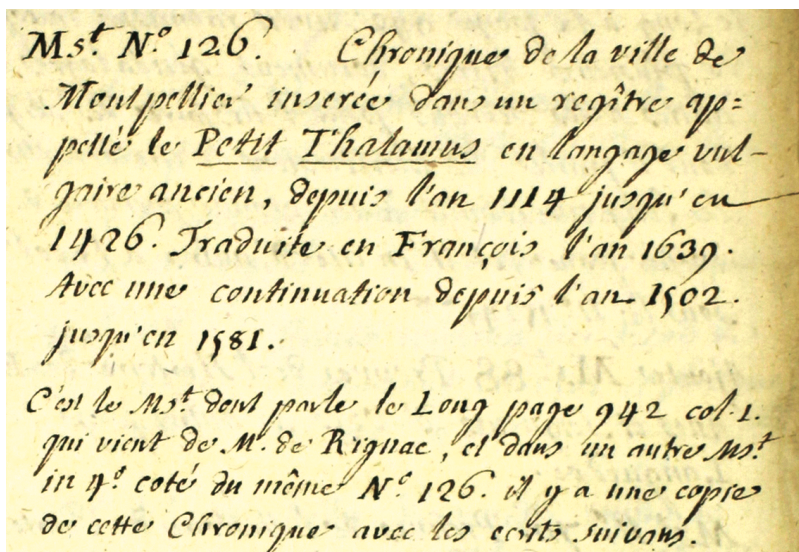 Ms.t N.o 126. Chronique de la ville de
Montpellier inserée dans un regître ap=
pellé le Petit Thalamus en langage vul-
gaire ancien, depuis l'an 1114 jusqu'en
1426. Traduite en François l'an 1639.
Avec une continuation depuis l'an 1502.
jusqu'en 1581.
C'est le Ms.t dont parle le Long page 942 col. 1.
qui vient de M. de Rignac, et dans un autre Ms.t
in 4.o coté du même N.o 126. il y a une copie
de cette Chronique avec les ecrits suivans.